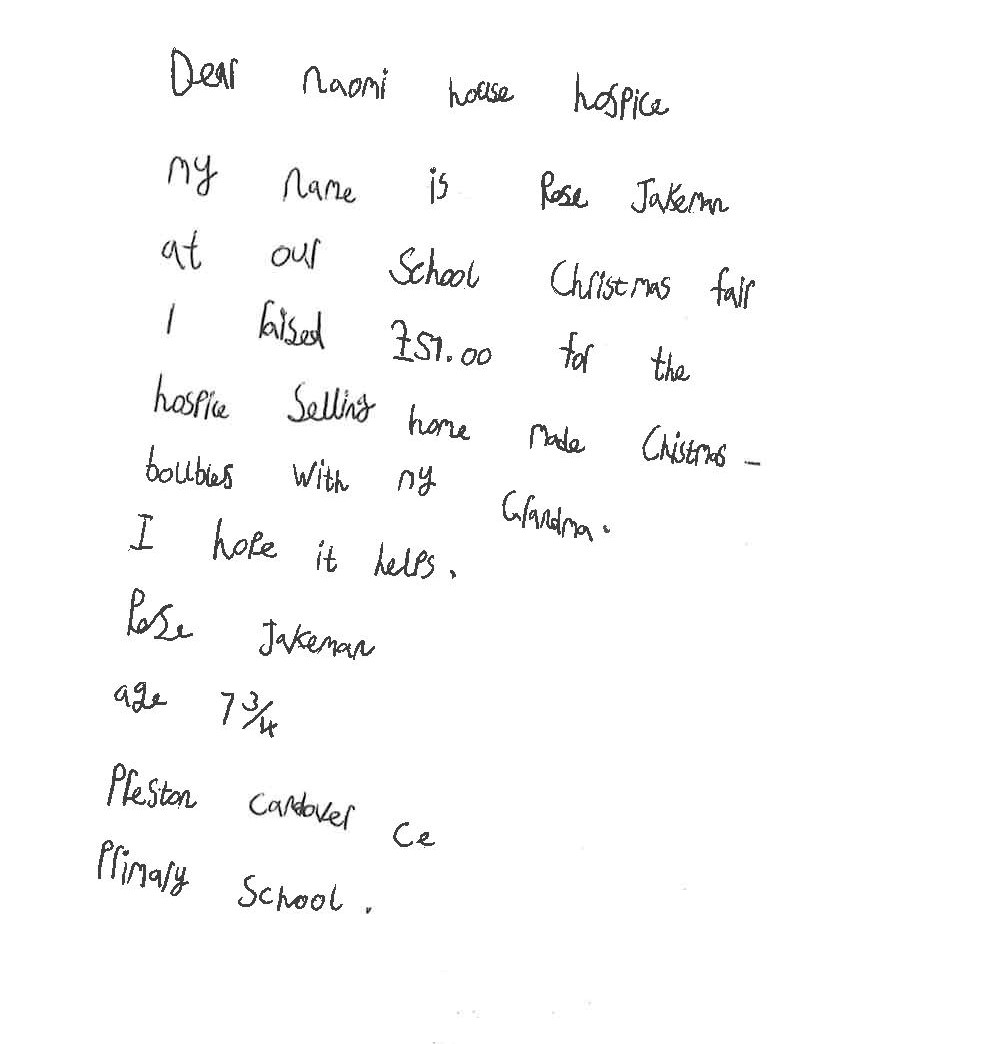 Dear Naomi house hospice
my name is Rose Jakeman
at our School Christmas fair
I raised £51.00 for the
hospice Selling home made Chistmas -
boubles with my Grandma.
I hope it helps.
Rose Jakeman
age 7 3/4
Preston candover Ce
Primary School.